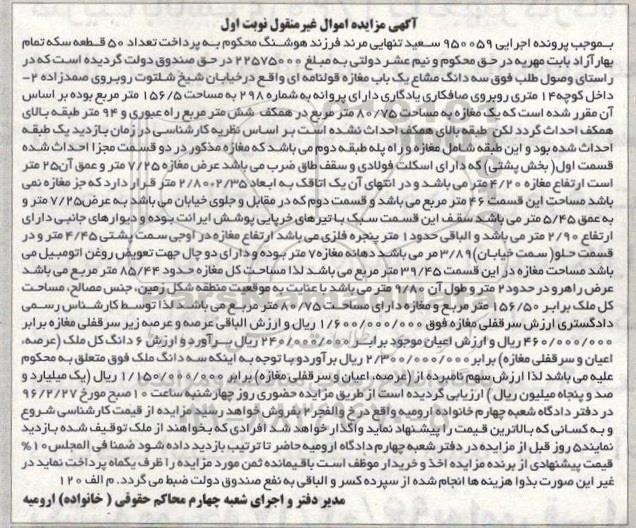 آگهی مزایده اموال غیرمنقول نوبت اول
بموجب پرونده اجرایی ۹۵۰۰۵۹ سعید تنهایی مرند فرزند هوشنگ محکوم به پرداخت تعداد ۵۰ قطعه سکه تمام
بهار آزاد بابت مهریه در حق محکوم و نیم عشر دولتی به مبلغ ۲۲۵۷۵۰۰۰ در حق صندوق دولت گردیده است که در
راستای وصول طلب فوق سه دانگ مشاع یک باب مغازه قولنامه ای واقع در خیابان شیخ شلتوت روبروی صمدزاده ۲-
داخل کوچه ۱۴ متری روبروی صافکاری یادگاری دارای پروانه به شماره ۲۹۸ به مساحت ۱۵۶/۵ متر مربع بوده بر اساس
آن مقرر شده است که یک مغازه به مساحت ۸۰/۷۵ متر مربع در همکف شش متر مربع راه عبوری و ۹۴ متر طبقه بالای
همکف احداث گردد لکن طبقه بالای همکف احداث نشده است بر اساس نظریه کارشناسی در زمان بازدید یک طبقه
احداث شده بود و این طبقه شامل مغازه و راه پله طبقه دوم می باشد که مغازه مذکور در دو قسمت مجزا احداث شده
قسمت اول( بخش پشتی ) که دارای اسکلت فولادی و سقف طاق ضرب می باشد عرض مغازه ۷/۲۵ متر و عمق آن ۲۵ متر
است ارتفاع مغازه ۴/۲۰ متر می باشد و در انتهای آن یک اتاقک به ابعاد ۲/۳۵×۲/۸۰ متر قرار دارد که جز مغازه نمی
باشد مساحت این قسمت ۴۶ متر مربع می باشد و قسمت دوم که در مقابل و جلوی خیابان می باشد به عرض ۷/۲۵ متر و
به عمق ۵/۴۵ متر می باشد سقف این قسمت سبک با تیرهای خرپایی پوشش ایرانت بوده و دیوارهای جانبی دارای
ارتفاع ۲/۹۰ متر می باشد و الباقی حدود ۱ متر پنجره فلزی می باشد ارتفاع مغازه در اوجی سمت پشتی ۴/۴۵ متر و در
قسمت جلو( سمت خیابان) ۳/۸۹ مر می باشد دهانه مغازه ۷ متر بوده و دارای دو چال جهت تعویض روغن اتومبیل می
باشد مساحت مغازه در این قسمت ۳۹/۴۵ متر مربع می باشد لذا مساحت کل مغازه حدود ۸۵/۴۴ متر مربع می باشد
عرض راهرو در حدود ۲ متر و طول آن ۹/۸۰ متر می باشد با عنایت به موقعیت منطقه شکل زمین، جنس مصالح، مساحت
کل ملک برابر ۱۵۶/۵۰ متر مربع و مغازه دارای مساحت ۸۰/۷۵ متر مربع می باشد لذا توسط کارشناس رسمی
دادگستری ارزش سرقفلی مغازه فوق ۱/۶۰۰/۰۰۰/۰۰۰ ریال و ارزش الباقی عرصه و عرصه زیر سرقفلی مغازه برابر
۴۶۰/۰۰۰/۰۰۰ ریال و ارزش اعیان موجود برابر ۲۴۰/۰۰۰/۰۰۰ ریال برآورد و ارزش ۶ دانگ کل ملک (عرصه،
اعیان و سرقفلی مغازه) برابر ۲/۳۰۰/۰۰۰/۰۰۰ ریال برآورد با توجه به اینکه سه دانگ ملک فوق متعلق به محکوم
علیه می باشد لذا ارزش سهم نامبرده از (عرصه، اعیان و سرقفلی مغازه) برابر ۱/۱۵۰/۰۰۰/۰۰۰ ریال (یک میلیارد و
صد و پنجاه میلیون ریال ) ارزیابی گردیده است از طریق مزایده حضوری روز چهارشنبه ساعت ۱۰ صبح مورخ ۹۶/۲/۲۷
در دفتر دادگاه شعبه چهارم خانواده ارومیه واقع در خ والفجر ۲ بفروش خواهد رسید مزایده از قیمت کارشناسی شروع
و به کسانی که بالاترین قیمت را پیشنهاد نماید واگذار خواهد شد افرادی که بخواهند از ملک توقیف شده بازدید
نمایند ۵ روز قبل از مزایده در دفتر شعبه چهارم دادگاه ارومیه حاضر تا ترتیب بازدید داده شود ضمنا فی المجلس ۱۰%
قیمت پیشنهادی از برنده مزایده اخذ و خریدار موظف است باقیمانده ثمن مورد مزایده را ظرف یکماه پرداخت نماید در
غیر این صورت بدوا هزینه ها انجام شده از سپرده کسر و الباقی به نفع صندوق دولت ضبط می گردد. م الف ۱۲۰
مدیر دفتر و اجرای شعبه چهارم محاکم حقوقی ( خانواده) ارومیه